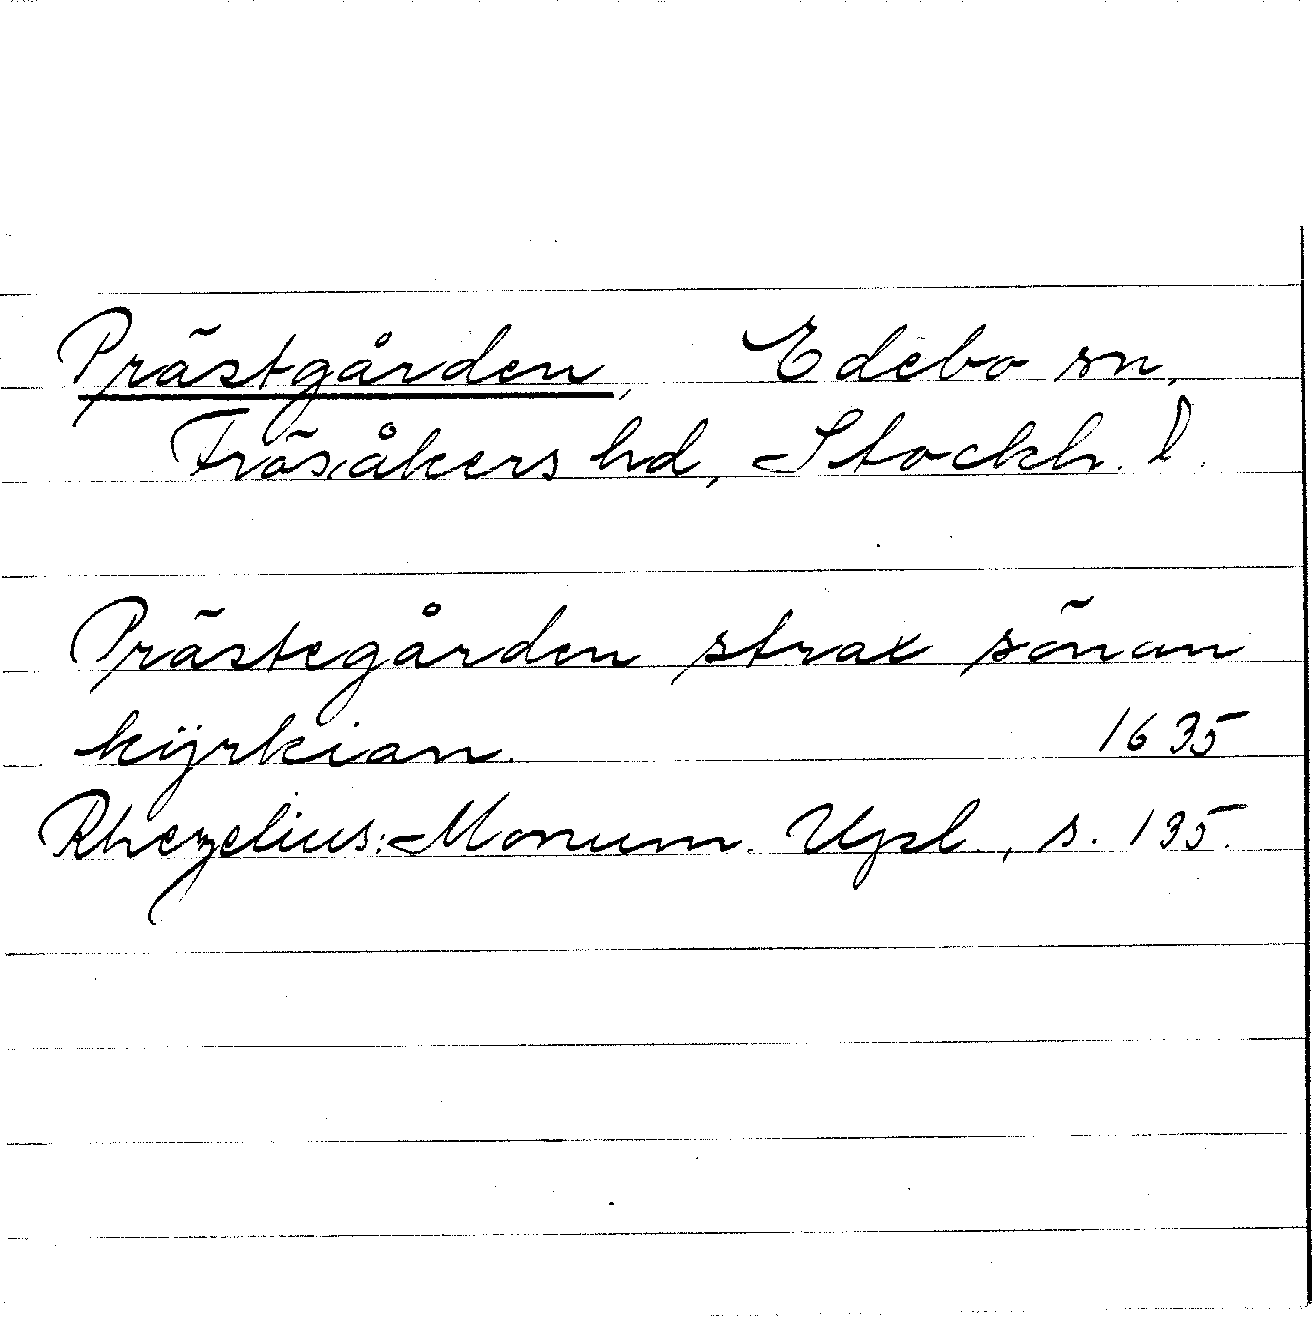 Prästgården, Edebo sn,
Frösåkers hd, Stockh. l.
Prästegården strax sönan
kÿrkian. 1635
Rhezelius: Monum. Upl., s. 135.